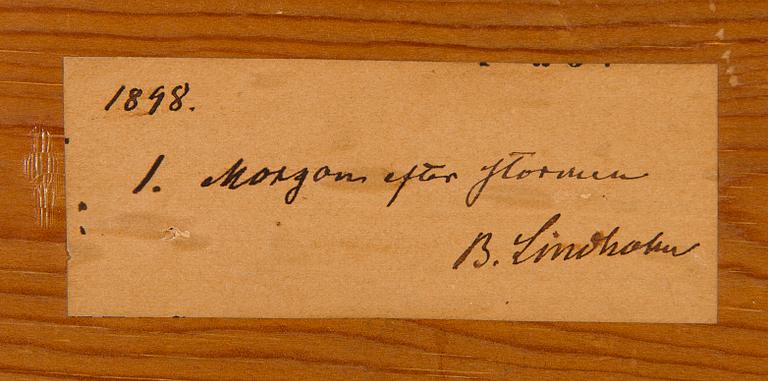 1898.
1. Morgon efter stormen
B. Lindholm